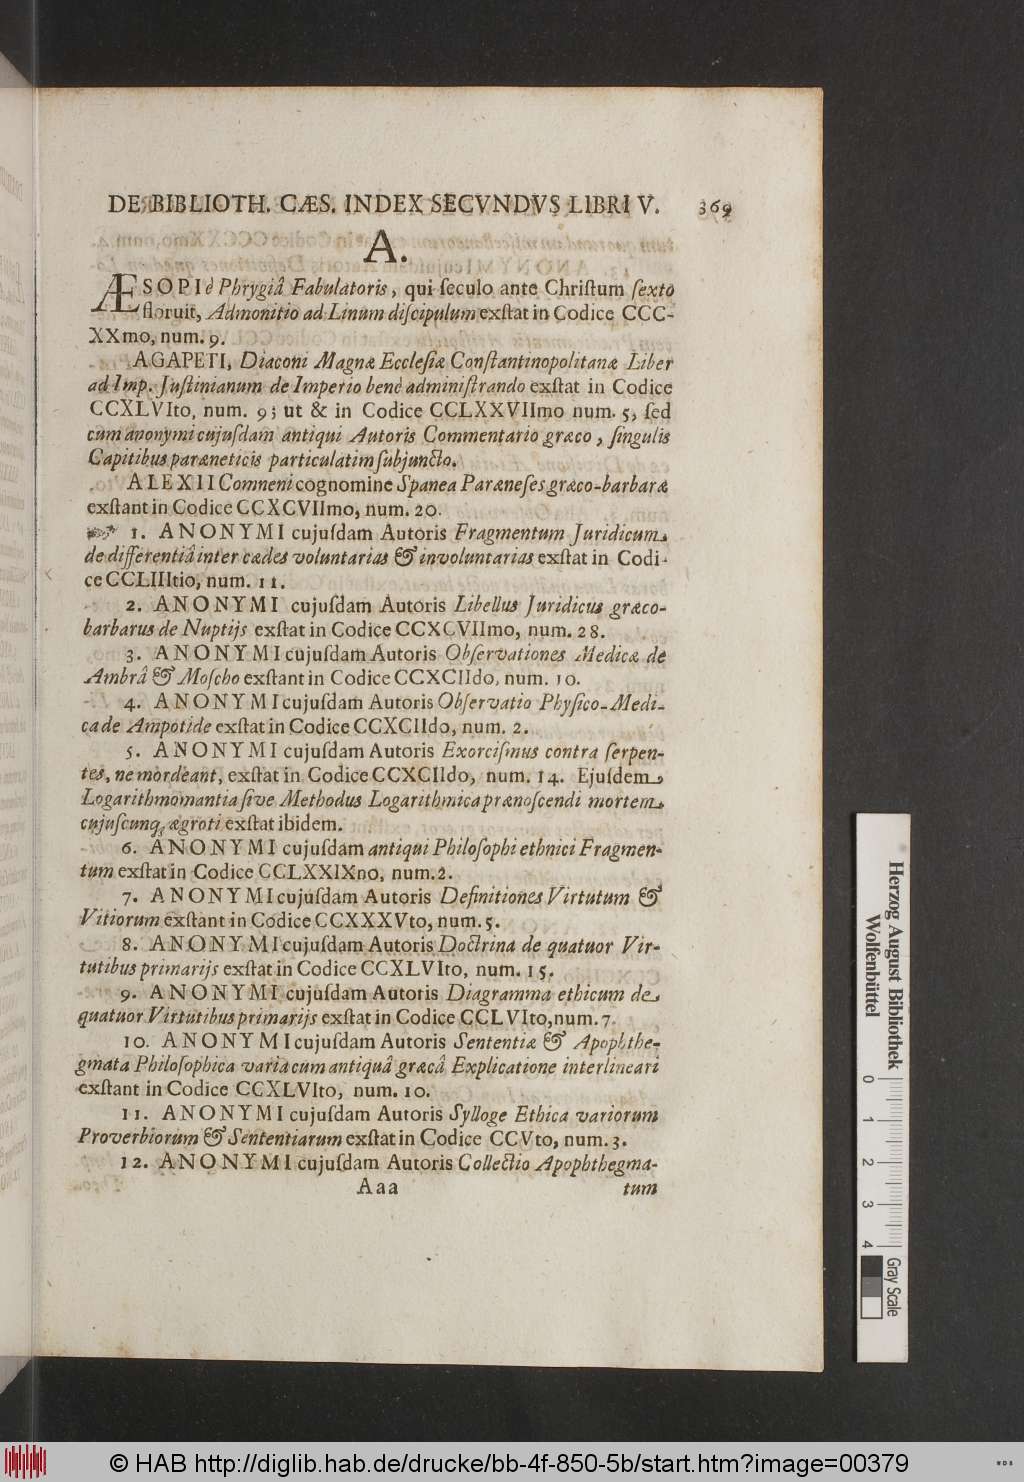 DE BIBLIOTH. CÆS. INDEX SECVNDVS LIBRI V. 369
A.
ÆSOPI è Phrygiâ Fabulatoris, qui ſeculo ante Chriſtum ſexto
floruit, Admonitio ad Linum diſcipulum exſtat in Codice CCC-
XXmo, num. 9.
AGAPETI, Diaconi Magnæ Eccleſiæ Conſtantinopolitanæ Liber
ad Imp. Juſtinianum de Imperio benè adminiſtrando exſtat in Codice
CCXLVIto, num. 9; ut & in Codice CCLXXVIImo num. 5, ſed
cum anonymi cujuſdam antiqui Autoris Commentario græco, ſingulis
Capitibus paræneticis particulatim ſubjuncto.
ALEXII Comneni cognomine Spanea Paræneſes græco-barbaræ
exſtant in Codice CCXCVIImo, num. 20.
☞ 1. ANONYMI cujuſdam Autoris Fragmentum Juridicum
de differentiâ inter cædes voluntarias & involuntarias exſtat in Codi-
ce CCLIIItio, num. 11.
2. ANONYMI cujuſdam Autoris Libellus Juridicus græco-
barbarus de Nuptijs exſtat in Codice CCXCVIImo, num. 28.
3. ANONYMI cujuſdam Autoris Obſervationes Medicæ de
Ambrâ & Moſcho exſtant in Codice CCXCIIdo, num. 10.
4. ANONYMI cujuſdam Autoris Obſervatio Phyſico-Medi-
ca de Ampotide exſtat in Codice CCXCIIdo, num. 2.
5. ANONYMI cujuſdam Autoris Exorciſmus contra ſerpen-
tes, ne mordeant, exſtat in Codice CCXCIIdo, num. 14. Ejuſdem
Logarithmomantia ſive Methodus Logarithmica prænoſcendi mortem
cujuſcunq; ægroti exſtat ibidem.
6. ANONYMI cujuſdam antiqui Philoſophi ethnici Fragmen-
tum exſtat in Codice CCLXXIXno, num. 2.
7. ANONYMI cujuſdam Autoris Definitiones Virtutum &
Vitiorum exſtant in Codice CCXXXVto, num. 5.
8. ANONYMI cujuſdam Autoris Doctrina de quatuor Vir-
tutibus primarijs exſtat in Codice CCXLVIto, num. 15.
9. ANONYMI cujuſdam Autoris Diagramma ethicum de
quatuor Virtutibus primarijs exſtat in Codice CCLVIto, num. 7.
10. ANONYMI cujuſdam Autoris Sententiæ & Apophthe-
gmata Philoſophica varia cum antiquâ græcâ Explicatione interlineari
exſtant in Codice CCXLVIto, num. 10.
11. ANONYMI cujuſdam Autoris Sylloge Ethica variorum
Proverbiorum & Sententiarum exſtat in Codice CCVto, num. 3.
12. ANONYMI cujuſdam Autoris Collectio Apophthegma-
Aaa tum
Herzog August Bibliothek
Wolfenbüttel
0 1 2 3 4
Gray Scale
© HAB http://diglib.hab.de/drucke/bb-4f-850-5b/start.htm?image=00379
WDB